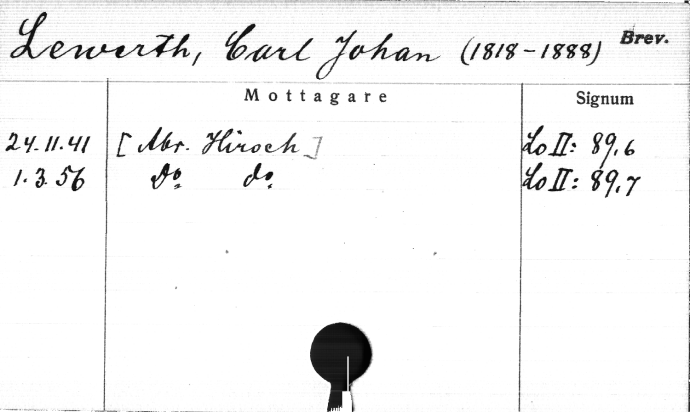 Lewerth, Carl Johan (1818-1888) Brev.
Mottagare Signum
24.11.41 [Abr. Hirsch] Lo II: 89,6
1.3.56 Do. do. Lo II: 89,7